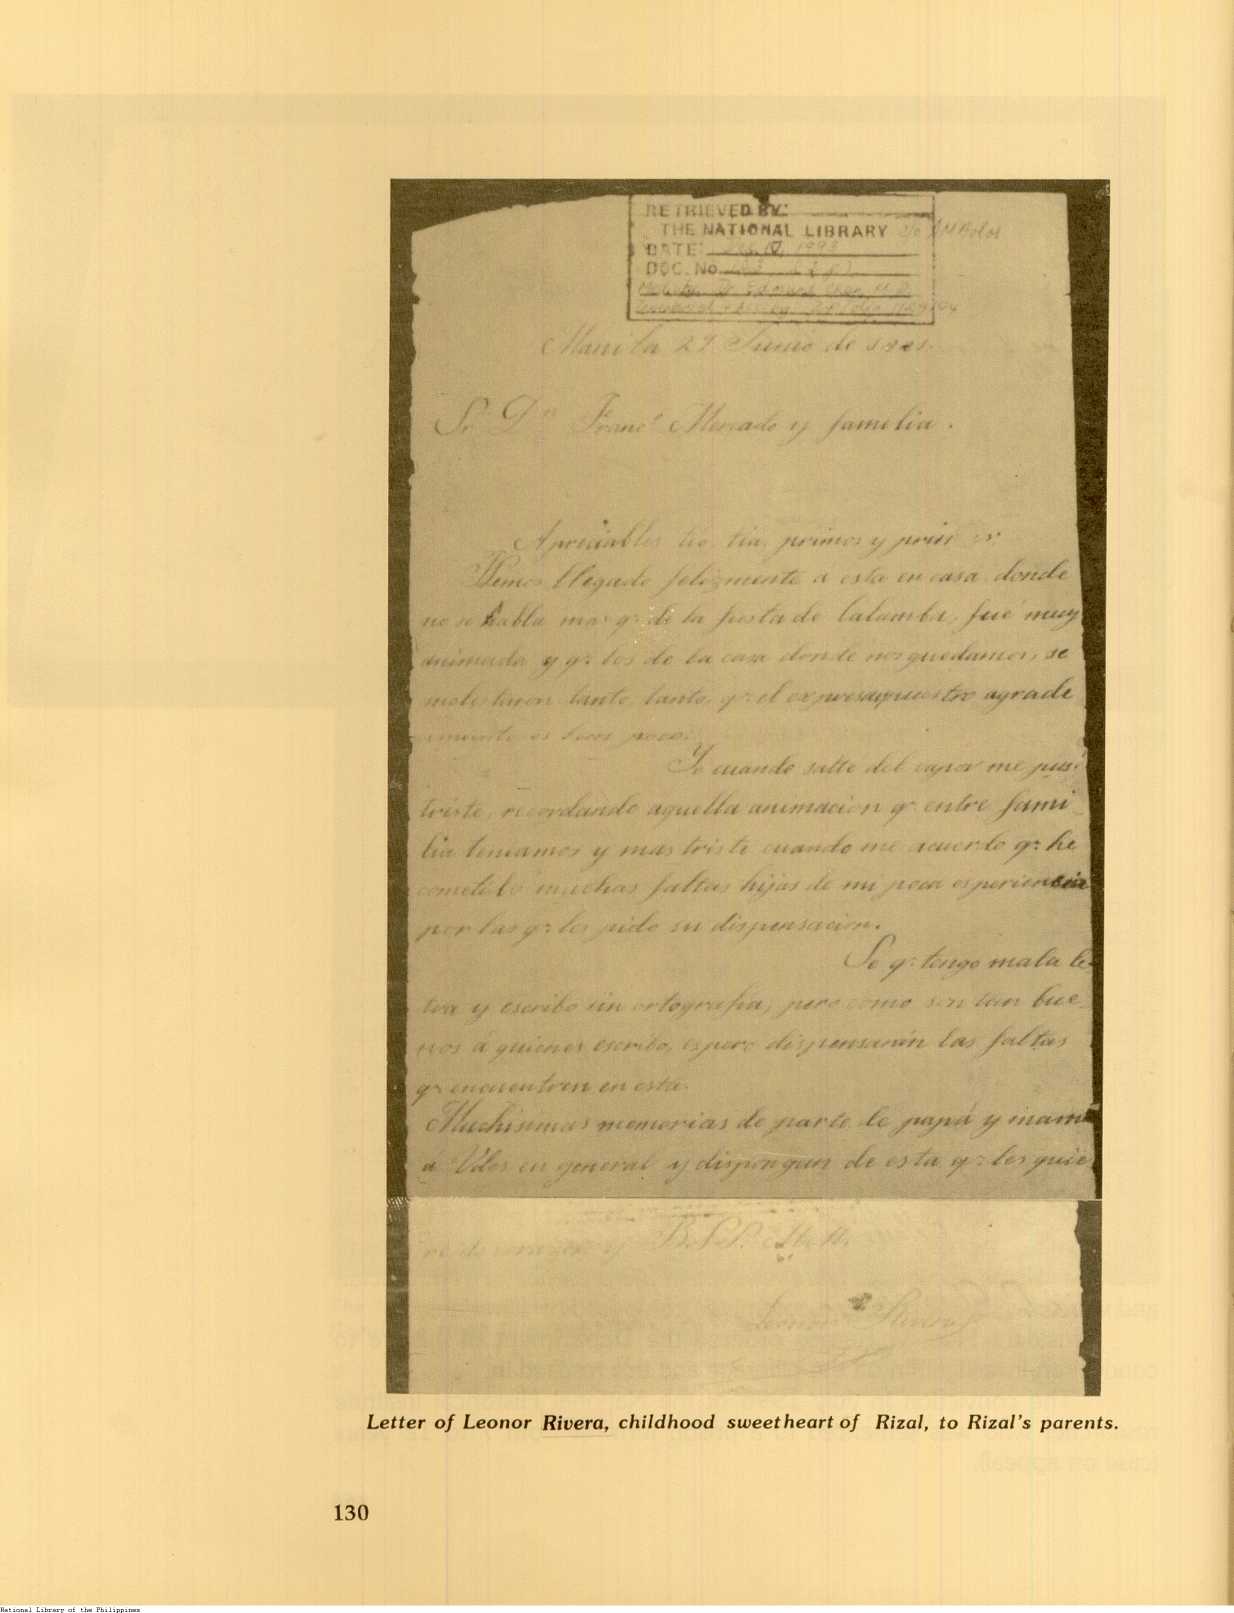 RETRIEVED BY:
THE NATIONAL LIBRARY
DATE: 1993
DOC. No.
Manila 29 Junio de
Sr. Dn. Franco. Mercado y familia.
Apreciables tio, tia, primos y primas:
Hemos llegado felizmente á esta en casa donde
no se habla mas qe. de la fiesta de Calamba, fué muy
animada y qe. los de la casa donde nos quedamos, se
molestaron tanto, tanto, qe. el expresar nuestro agrade
cimiento es bien poco.
Yo cuando salte del vapor me puse
triste, recordando aquella animacion qe. entre fami-
lia teniamos y mas triste cuando me acuerdo qe. he
cometido muchas faltas hijas de mi poca esperiencia
por las qe. les pido su dispensacion.
Se qe. tengo mala le-
tra y escribo sin ortografia, pero como son tan bue-
nos á quienes escribo, espero dispensarán las faltas
qe. encuentren en esta.
Muchisimas memorias de parte de papá y mamá
á Vdes en general y dispongan de esta qe. les quie
re de corazon y B.S.P. 
Leonor Rivera
Letter of Leonor Rivera, childhood sweetheart of Rizal, to Rizal's parents.
130
National Library of the Philippines